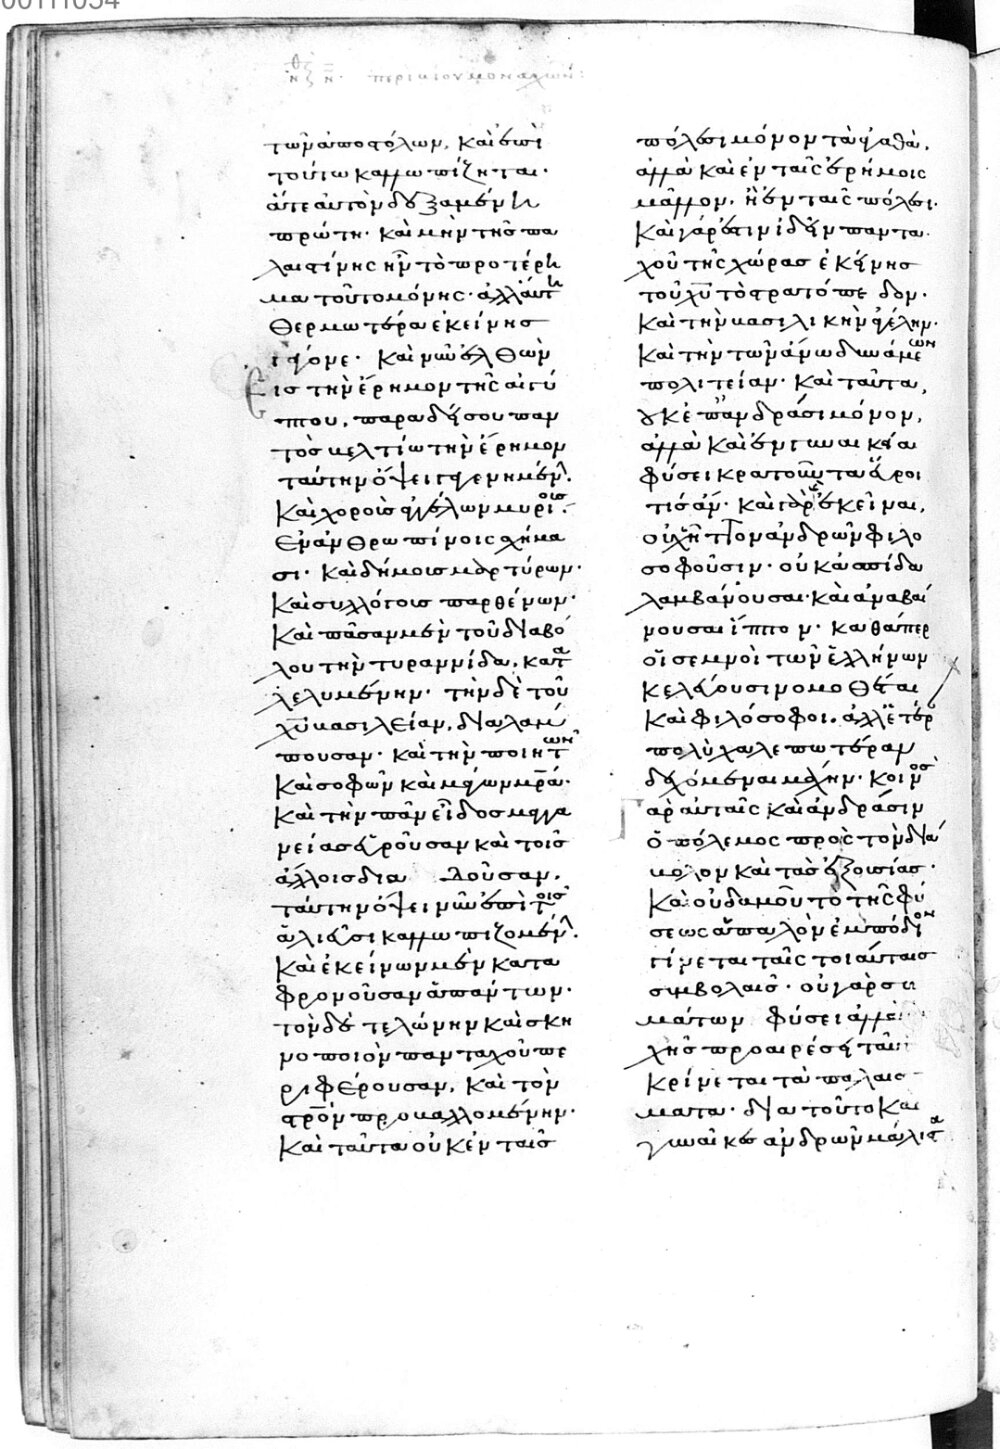 τῶν ἀποστόλων, καὶ ἐπὶ
τούτω καλλωπίζηται·
ἅτε αὐτὸν δεξαμένη
πρώτη· καὶ μὴν τῆς πα
λαιστίνης ἦν τὸ προτέρη
μα τοῦτο μόνης· ἀλλ' αὕτη
θερμωτέρα ἐκείνης
γέγονε· καὶ νῦν ἐλθὼν
εἰς τὴν ἔρημον τῆς αἰγύ
πτου, παραδείσου παν
τὸς βελτίω τὴν ἔρημον
ταύτην ὄψει γεγενημένην.
καὶ χοροὺς ἀγγέλων μυρίους
ἐν ἀνθρωπίνοις σχήμα
σι· καὶ δήμους μαρτύρων·
καὶ συλλόγους παρθένων·
καὶ πᾶσαν μὲν τοῦ διαβό
λου τὴν τυραννίδα, κατα
λελυμένην· τὴν δὲ τοῦ
χυ βασιλείαν, διαλάμ
πουσαν· καὶ τὴν ποιητῶν
καὶ σοφῶν καὶ μάγων μρα·
καὶ τὴν πᾶν εἶδος μαγγα
νείας εὑροῦσαν καὶ τοῖς
ἄλλοις διαδοῦσαν,
ταύτην ὄψει νῦν ἐπὶ τοῖς
ἁλιεῦσι καλλωπιζομένην.
καὶ ἐκείνων μὲν κατα
φρονοῦσαν ἁπάντων·
τὸν δὲ τελώνην καὶ σκη
νοποιὸν πανταχοῦ πε
ριφέρουσαν, καὶ τὸν
στρον προβαλλομένην·
καὶ ταῦτα οὐκ ἐν ταῖς
πόλεσι μόνον τὰ ἀγαθὰ,
ἀλλὰ καὶ ἐν ταῖς ἐρήμοις
μᾶλλον, ἢ ἐν ταῖς πόλεσι·
καὶ γάρ ἐστιν ἰδεῖν παντα
χοῦ τῆς χώρας ἐκείνης
τοῦ χυ τὸ στρατόπεδον·
καὶ τὴν βασιλικὴν ἀγέλην·
καὶ τὴν τῶν ἄνω δυνάμεων
πολιτείαν· καὶ ταῦτα,
οὐκ ἐπ' ἀνδράσι μόνον,
ἀλλὰ καὶ ἐν γυναικεία
φύσει κρατοῦντα εὕροι
τις ἄν· καὶ γὰρ ἐκεῖναι,
οὐχ ἧττον ἀνδρῶν φιλο
σοφοῦσιν· οὐκ ἀσπίδα
λαμβάνουσαι· καὶ ἀναβαί
νουσαι ἵππον· καθάπερ
οἱ σεμνοὶ τῶν ἑλλήνων
κελεύουσι νομοθέται
καὶ φιλόσοφοι. ἀλλ' ἑτέραν
πολὺ χαλεπωτέραν
δεχόμεναι μάχην· κοινὸς
γὰρ αὐταῖς καὶ ἀνδράσιν
ὁ πόλεμος πρὸς τὸν διά
βολον καὶ τὰς ἐξουσίας·
καὶ οὐδαμοῦ τὸ τῆς φύ
σεως ἁπαλὸν ἐμπόδιον
γίνεται ταῖς τοιαύταις
συμβολαῖς· οὐ γὰρ σω
μάτων φύσει ἀλλὰ
χῆς προαιρέσει ταῦτα
κρίνεται τὰ παλαίσ
ματα· διὰ τοῦτο καὶ
γυναῖκες ἀνδρῶν μάλιστα